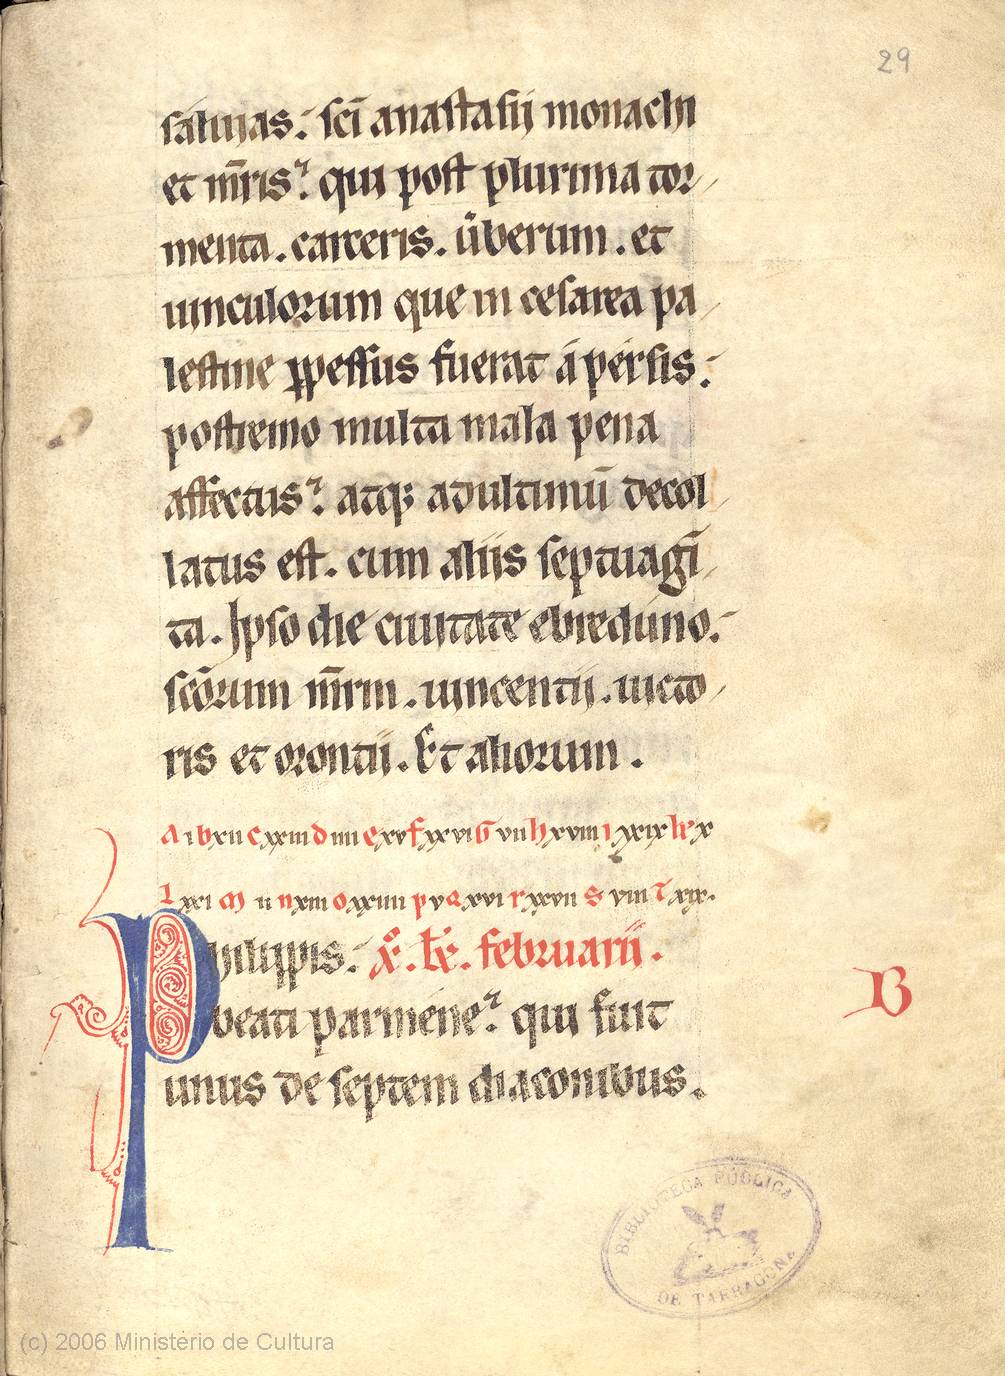 29
saluias: sc̄i anastasii monachi
et m̄ris: qui post plurima tor
menta. carceris. u̾berum. et
uinculorum que in cesarea pa
lestine ꝑpessus fuerat á persis:
postremo multa mala pena
affectus: atqꝫ ad ultimū decol
latus est. cum aliis septuagī
ta. Ipso die ciuitate ebreduno:
sc̄orum m̄rm. uincentii. uicto
ris et orontii. Et aliorum.
A i b xii c xxiii d iiii e xv f xxvi G vii h xviii i xxix k x
l xxi M ii n xiii o xxiiii p v q xvi r xxvii s viii t xix.
Philippis: x. kł. februarii.
B
beati parmene: qui fuit
unus de septem diaconibus.
BIBLIOTECA PÚBLICA
DE TARRAGONA
(c) 2006 Ministerio de Cultura